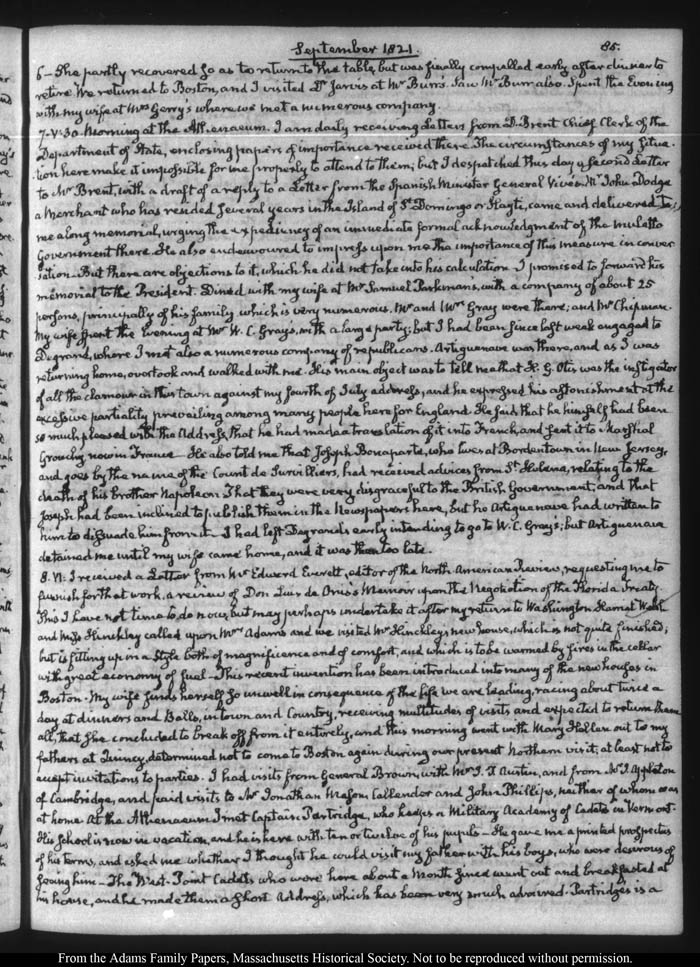 September 1821.
85.
6 – She partly recovered so as to return to the table, but was finally compelled early after dinner to
retire. We returned to Boston, and I visited Dr Jarvis at Mr Burr's. Saw Mr Burr also. Spent the Evening
with my wife at Mrs Gerry's where we met a numerous company.
7. V:30. Morning at the Athenaeum. I am daily receiving Letters from D. Brent Chief Clerk of the
Department of State, enclosing papers of importance received there. The circumstances of my situa-
tion here make it impossible for me properly to attend to them; but I despatched this day a second Letter
to Mr Brent, with a draft of a reply to a Letter from the Spanish Minister General Vivés. Mr John Dodge
a Merchant who has resided several years in the Island of St Domingo or Hayti, came and delivered to
me a long memorial, urging the expediency of an immediate formal acknowledgment of the mulatto
Government there. He also endeavoured to impress upon me the importance of this measure in conver-
sation. But there are objections to it, which he did not take into his calculation. I promised to forward his
memorial to the President. Dined with my wife at Mr Samuel Parkman's, with a company of about 25
persons, principally of his family which is very numerous. Mr and Mrs Gray were there; and Mr Chipman.
My wife spent the Evening at Mr W. C. Gray's, with a large party; but I had been since last week engaged to
Degrand, where I met also a numerous company of republicans. Artiguenave was there, and as I was
returning home, overtook and walked with me. His main object was to tell me that H. G. Otis was the instigator
of all the clamour in this town against my fourth of July address, and he expressed his astonishment at the
excessive partiality prevailing among many people here for England. He said that he himself had been
so much pleased with the Address that he had made a translation of it into French, and sent it to Marshal
Grouchy now in France. He also told me that Joseph Bonaparte, who lives at Bordentown in New Jersey,
and goes by the name of the Count de Survilliers, had received advices from St Helena, relating to the
death of his brother Napoleon. That they were very disgraceful to the British Government; and that
Joseph had been inclined to publish them in the Newspapers here, but he Artiguenave had written to
him to dissuade him from it – I had left Degrand's early intending to go to W. C. Gray's; but Artiguenave
detained me until my wife came home, and it was then too late.
8. VI: I received a Letter from Mr Edward Everett, editor of the North-American Review, requesting me to
furnish for that work, a review of Don Luis de Onis's Memoir upon the Negotiation of the Florida Treaty.
This I have not time to do now, but may perhaps undertake it after my return to Washington. Harriet Welsh
and Miss Hinckley called upon Mrs Adams and we visited Mr Hinckley's new house, which is not quite finished;
but is fitting up in a style both of magnificence and of comfort, and which is to be warmed by fires in the cellar
with great economy of fuel. This recent invention has been introduced into many of the new houses in
Boston. My wife finds herself so unwell in consequence of the life we are leading, racing about twice a
day at dinners and Balls, in town and Country, receiving multitudes of visits and expected to return them
all, that she concluded to break off from it entirely, and this morning went with Mary Hellen out to my
father's at Quincy, determined not to come to Boston again during our present Northern visit, at least not to
accept invitations to parties. I had visits from General Brown, with Mr J. T Austin, and from Mr J. Appleton
of Cambridge, and paid visits to Mr Jonathan Mason, Callender and John Phillips, neither of whom was
at home. At the Athenaeum I met Captain Partridge, who keeps a Military Academy of Cadets in Vermont.
His school is now in vacation, and he is here with ten or twelve of his pupils – He gave me a printed prospectus
of his terms, and asked me whether I thought he could visit my father with his boys, who were desirous of
seeing him – The West-Point Cadets who were here about a Month since went out and breakfasted at
his house, and he made them a short Address, which has been very much admired. Partridge's is a
From the Adams Family Papers, Massachusetts Historical Society. Not to be reproduced without permission.